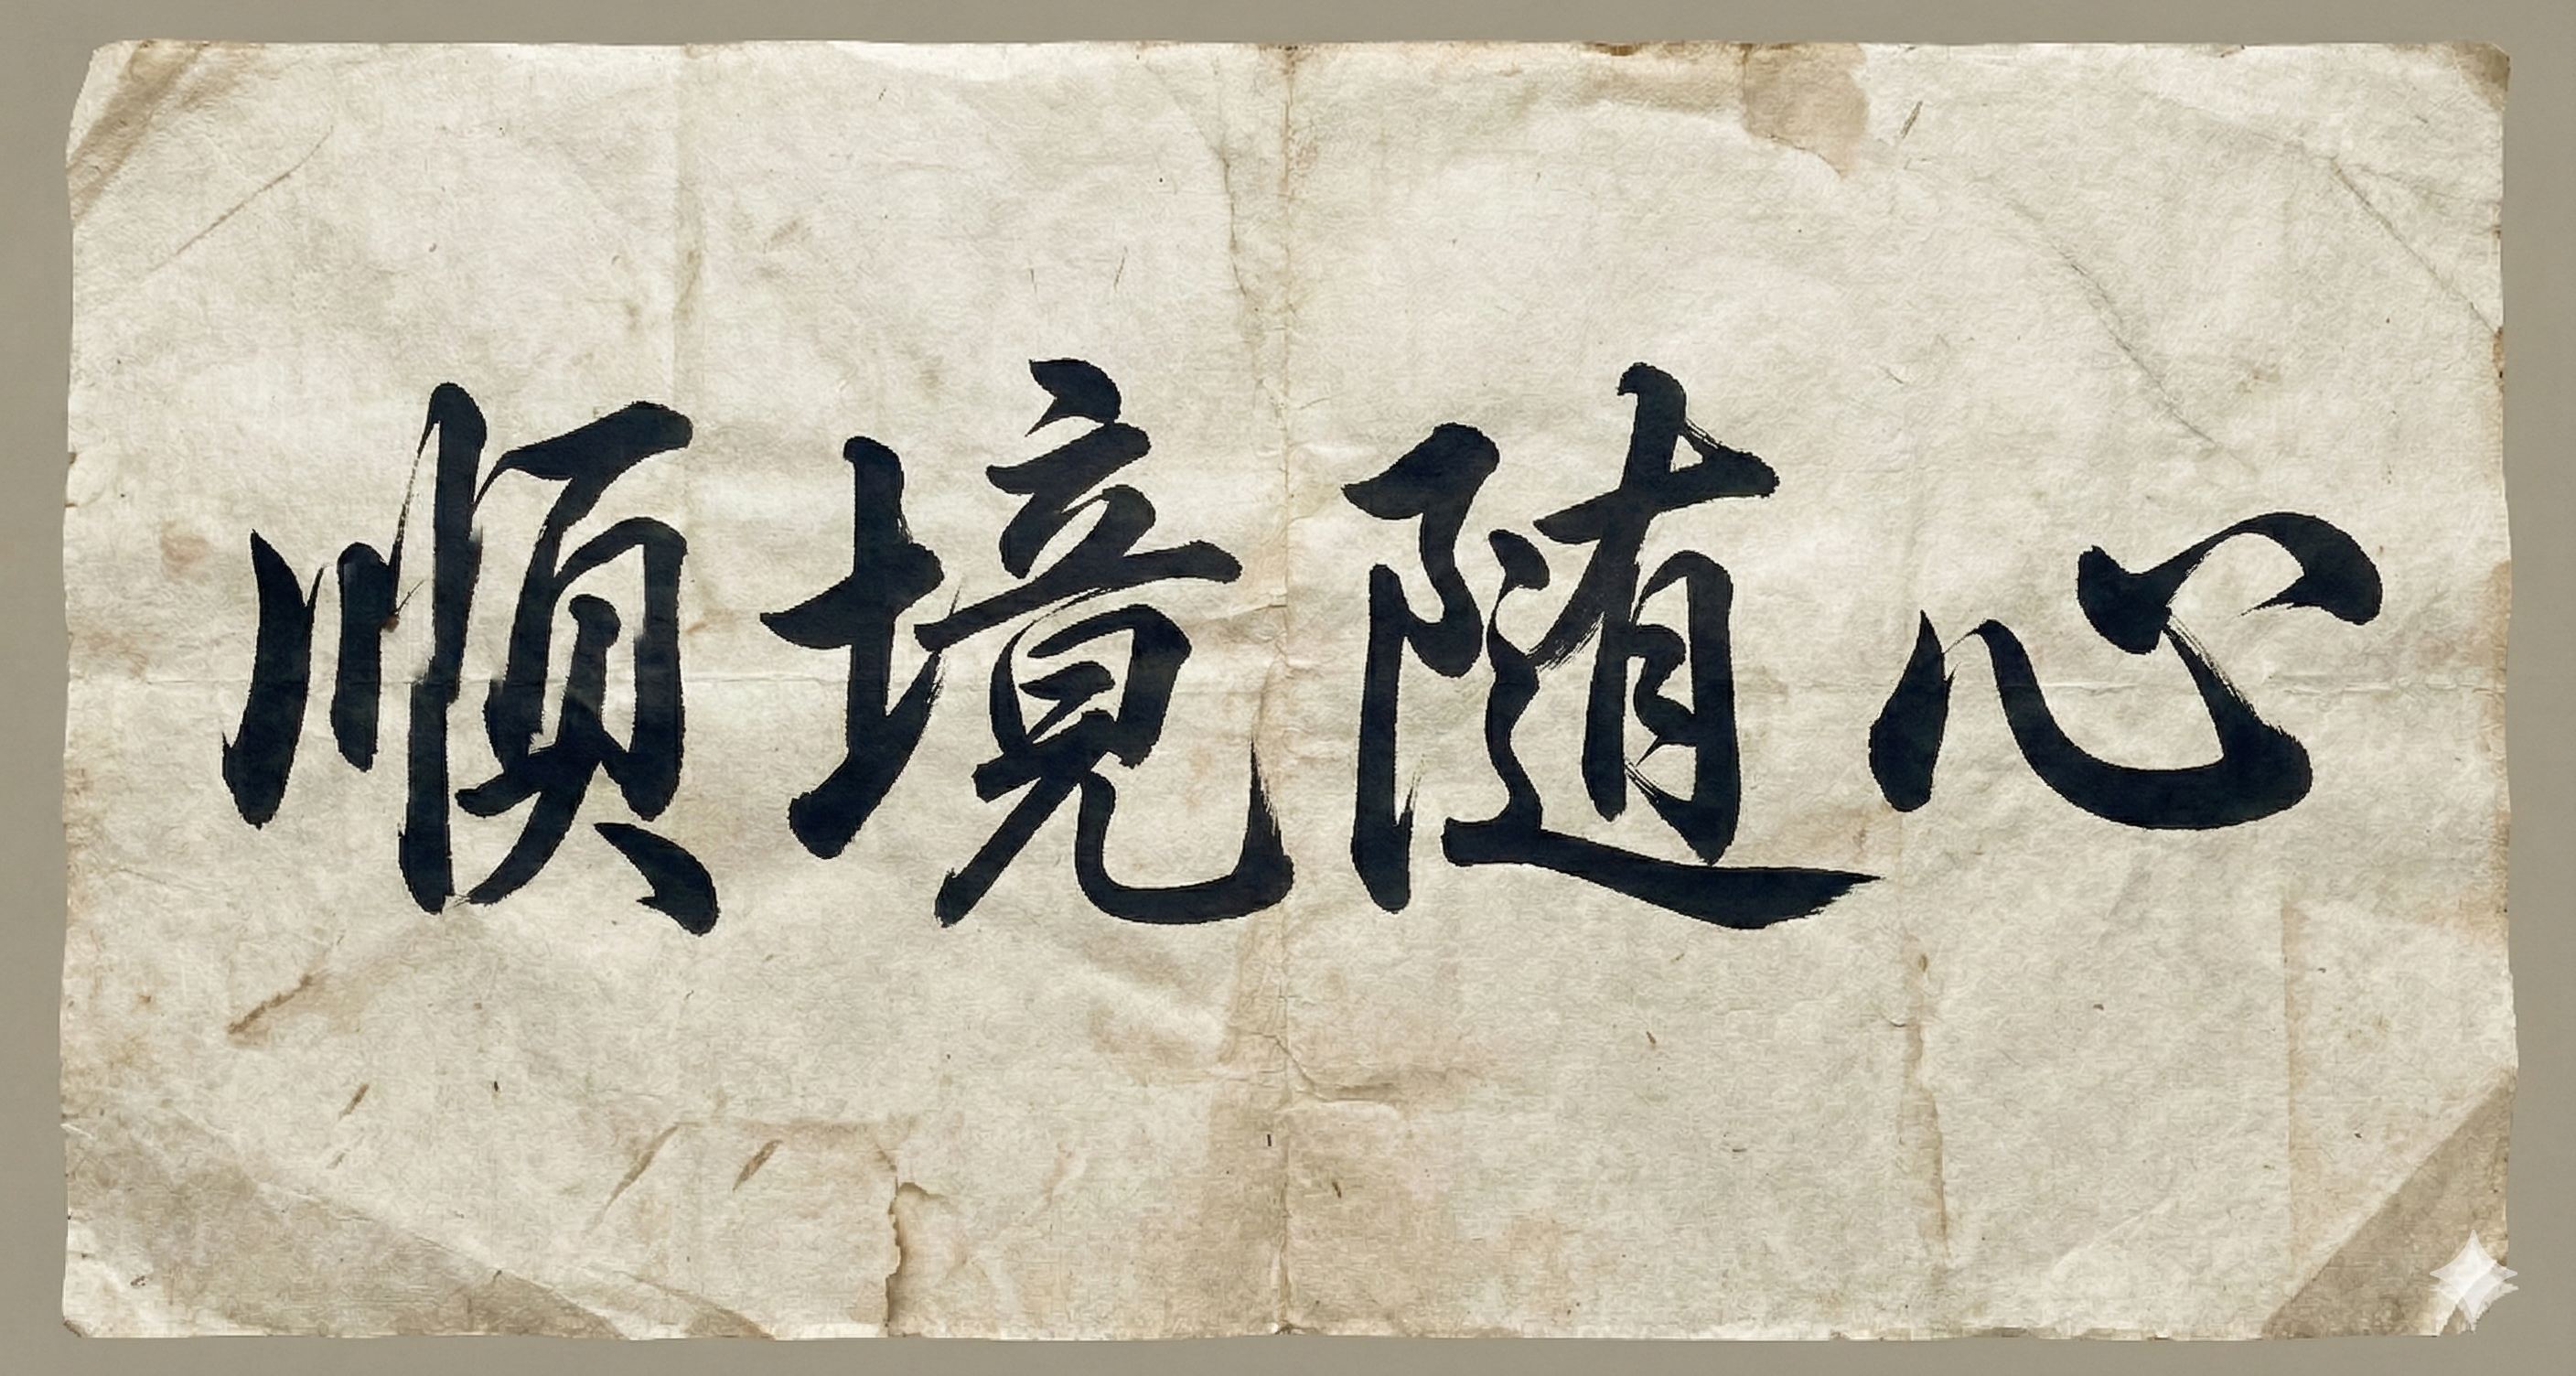 順境随心